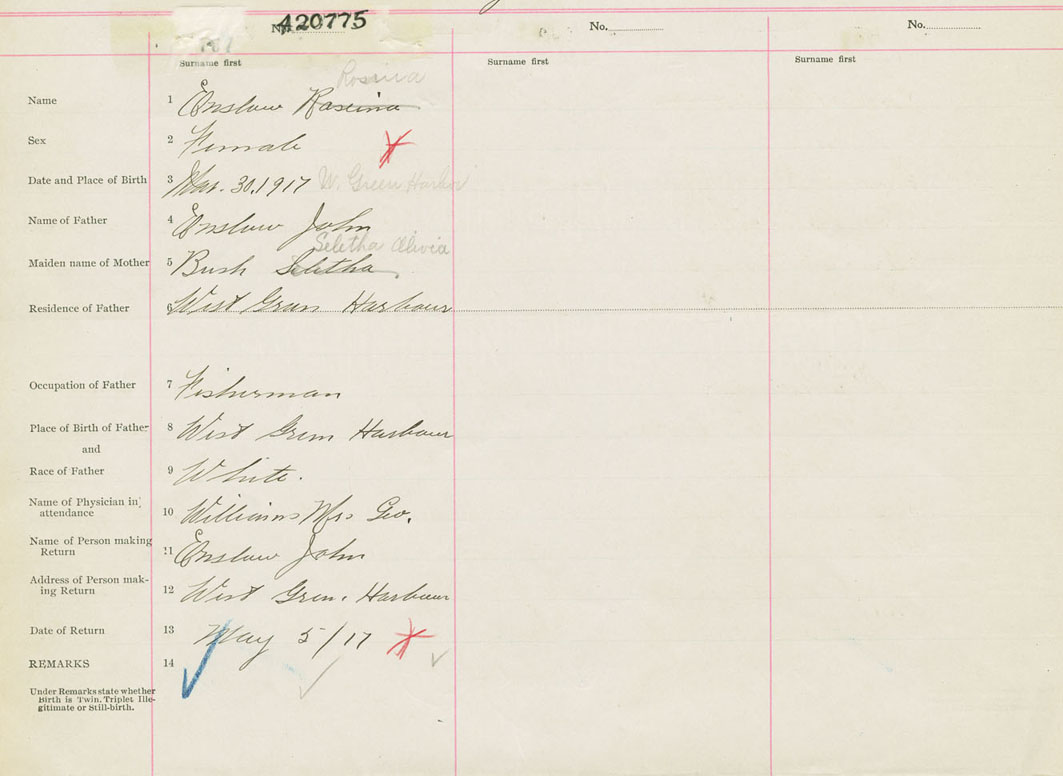 No. 420775 No. No.
Surname first Surname first Surname first
Rosina
Name 1 Enslow Roseina
Sex 2 Female
Date and Place of Birth 3 Mar. 30, 1917 W. Green Harbor
Name of Father 4 Enslow John
Seletha Olivia
Maiden name of Mother 5 Bush Seletha
Residence of Father 6 West Green Harbour
Occupation of Father 7 Fisherman
Place of Birth of Father 8 West Green Harbour
and
Race of Father 9 White.
Name of Physician in
attendance 10 Williams Mrs Geo.
Name of Person making
Return 11 Enslow John
Address of Person mak-
ing Return 12 West Green. Harbour
Date of Return 13 May 5/17
REMARKS 14
Under Remarks state whether
Birth is Twin, Triplet Ille-
gitimate or Still-birth.